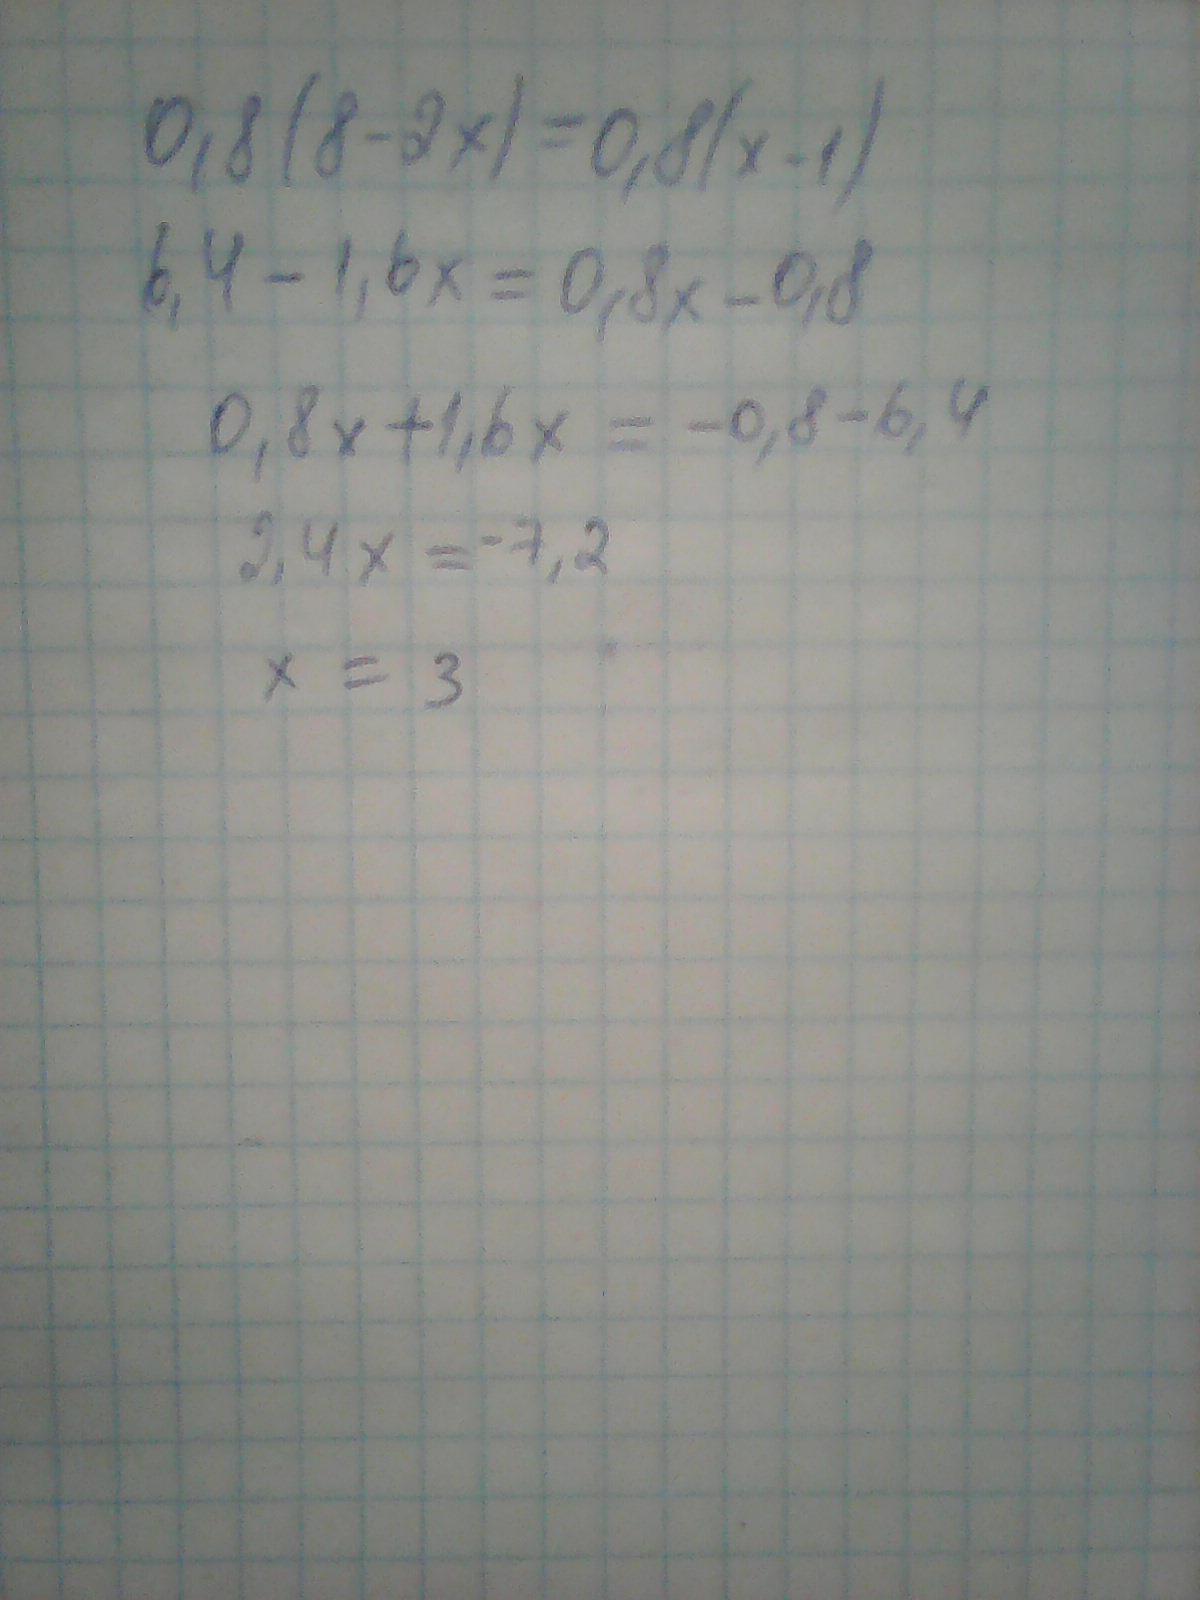 0,8(8-2x)=0,8(x-1)
6,4-1,6x=0,8x-0,8
0,8x+1,6x=-0,8-6,4
2,4x=-7,2
x=3